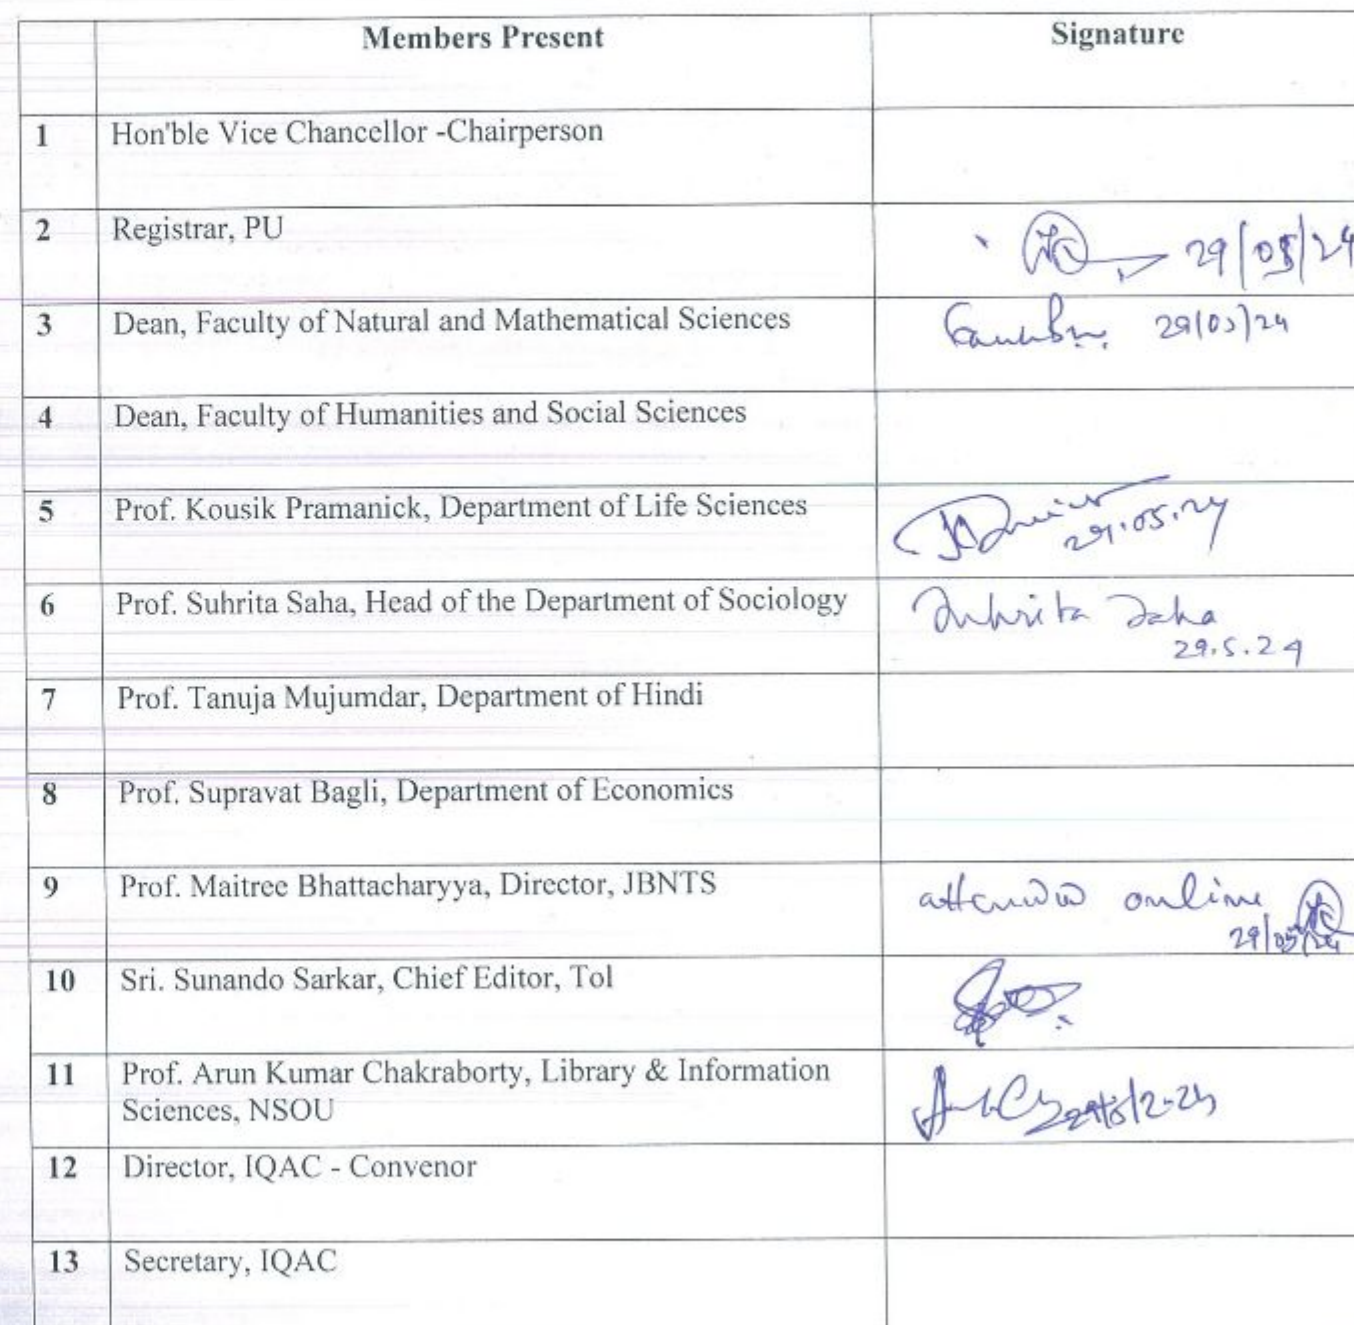 Members Present Signature
1 Hon'ble Vice Chancellor -Chairperson
2 Registrar, PU 29/05/24
3 Dean, Faculty of Natural and Mathematical Sciences 29/05/24
4 Dean, Faculty of Humanities and Social Sciences
5 Prof. Kousik Pramanick, Department of Life Sciences
29.05.24
6 Prof. Suhrita Saha, Head of the Department of Sociology Suhrita Saha
29.5.24
7 Prof. Tanuja Mujumdar, Department of Hindi
8 Prof. Supravat Bagli, Department of Economics
9 Prof. Maitree Bhattacharyya, Director, JBNTS attended online
29/05/24
10 Sri. Sunando Sarkar, Chief Editor, ToI
11 Prof. Arun Kumar Chakraborty, Library & Information
Sciences, NSOU
12 Director, IQAC - Convenor
13 Secretary, IQAC